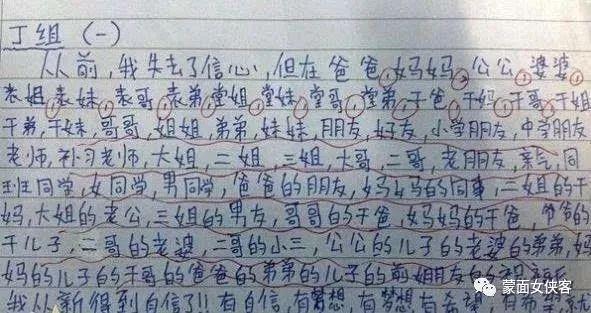 丁组 (一)
从前，我失去了信心，但在爸爸，妈妈，公公，婆婆，
表姐，表妹，表哥，表弟，堂姐，堂妹，堂哥，堂弟，干爸，干妈，干哥，干姐
干弟，干妹，哥哥，姐姐，弟弟，妹妹，朋友，好友，小学朋友，中学朋友
老师，补习老师，大姐，二姐，三姐，大哥，二哥，老朋友，亲戚，同
班同学，女同学，男同学，爸爸的朋友，妈妈的同事，二姐的干
妈，大姐的老公，三姐的男友，哥哥的干爸，妈妈的干爸，爷爷的
干儿子，二哥的老婆，二哥的小三，公公的儿子的老婆的弟弟，妈
妈的儿子的干哥的爸爸的弟弟的儿子的前女朋友的
我从新得到自信了!! 有自信，有梦想，有梦想有希望，有希望就
蒙面女侠客